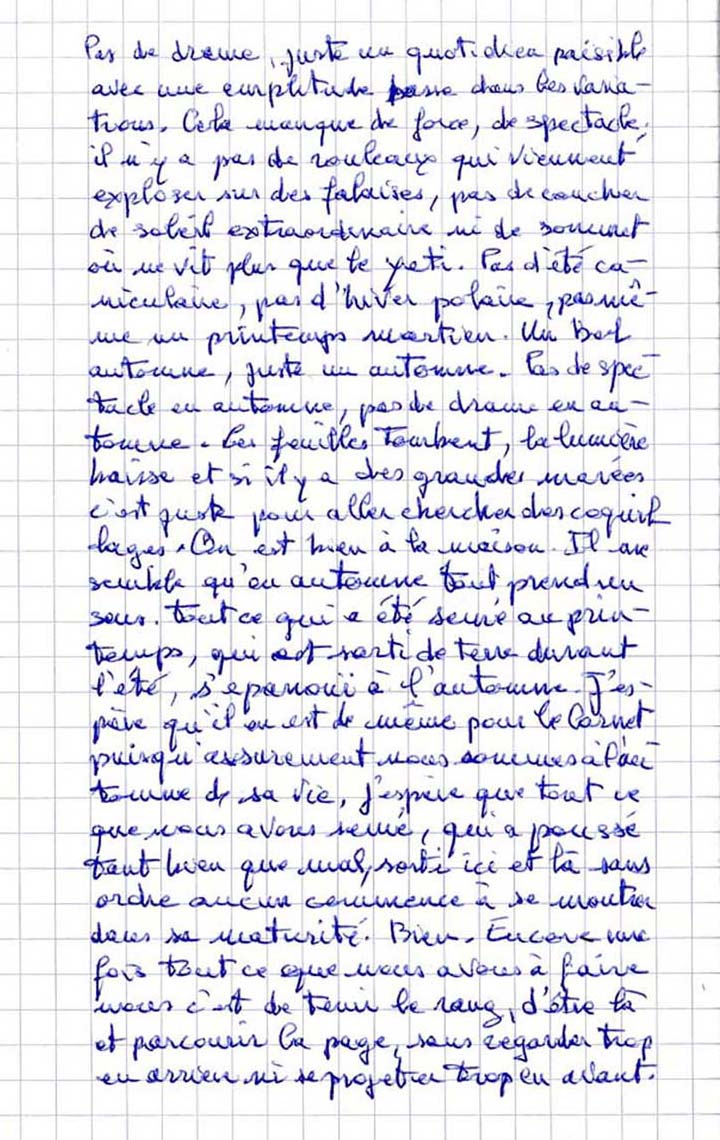 Pas de drame, juste un quotidien paisible
avec une amplitude basse dans les varia-
tions. Cela manque de force, de spectacle,
il n'y a pas de rouleaux qui viennent
exploser sur des falaises, pas de coucher
de soleil extraordinaire ni de sommet
où ne vit plus que le yeti. Pas d'été ca-
niculaire, pas d'hiver polaire, pas mê-
me un printemps martien. Un bel
automne, juste un automne. Pas de spec-
tacle en automne, pas de drame en au-
tomne. Les feuilles tombent, la lumière
baisse et si il y a des grandes marées
c'est juste pour aller chercher des coquil
lages. On est bien à la maison. Il me
semble qu'en automne tout prend un
sens. Tout ce qui a été semé au prin-
temps, qui est sorti de terre durant
l'été, s'epanoui à l'automne. J'es-
père qu'il en est de même pour le Carnet
puisqu'assurement nous sommes à l'au
tomne de sa vie, j'espère que tout ce
que nous avons semé, qui a poussé
tant bien que mal, sorti ici et là sans
ordre aucun commence à se montrer
dans sa maturité. Bien. Encore une
fois tout ce que nous avons à faire
nous c'est de tenir le rang, d'être là
et parcourir la page, sans regarder trop
en arrière ni se projeter trop en avant.